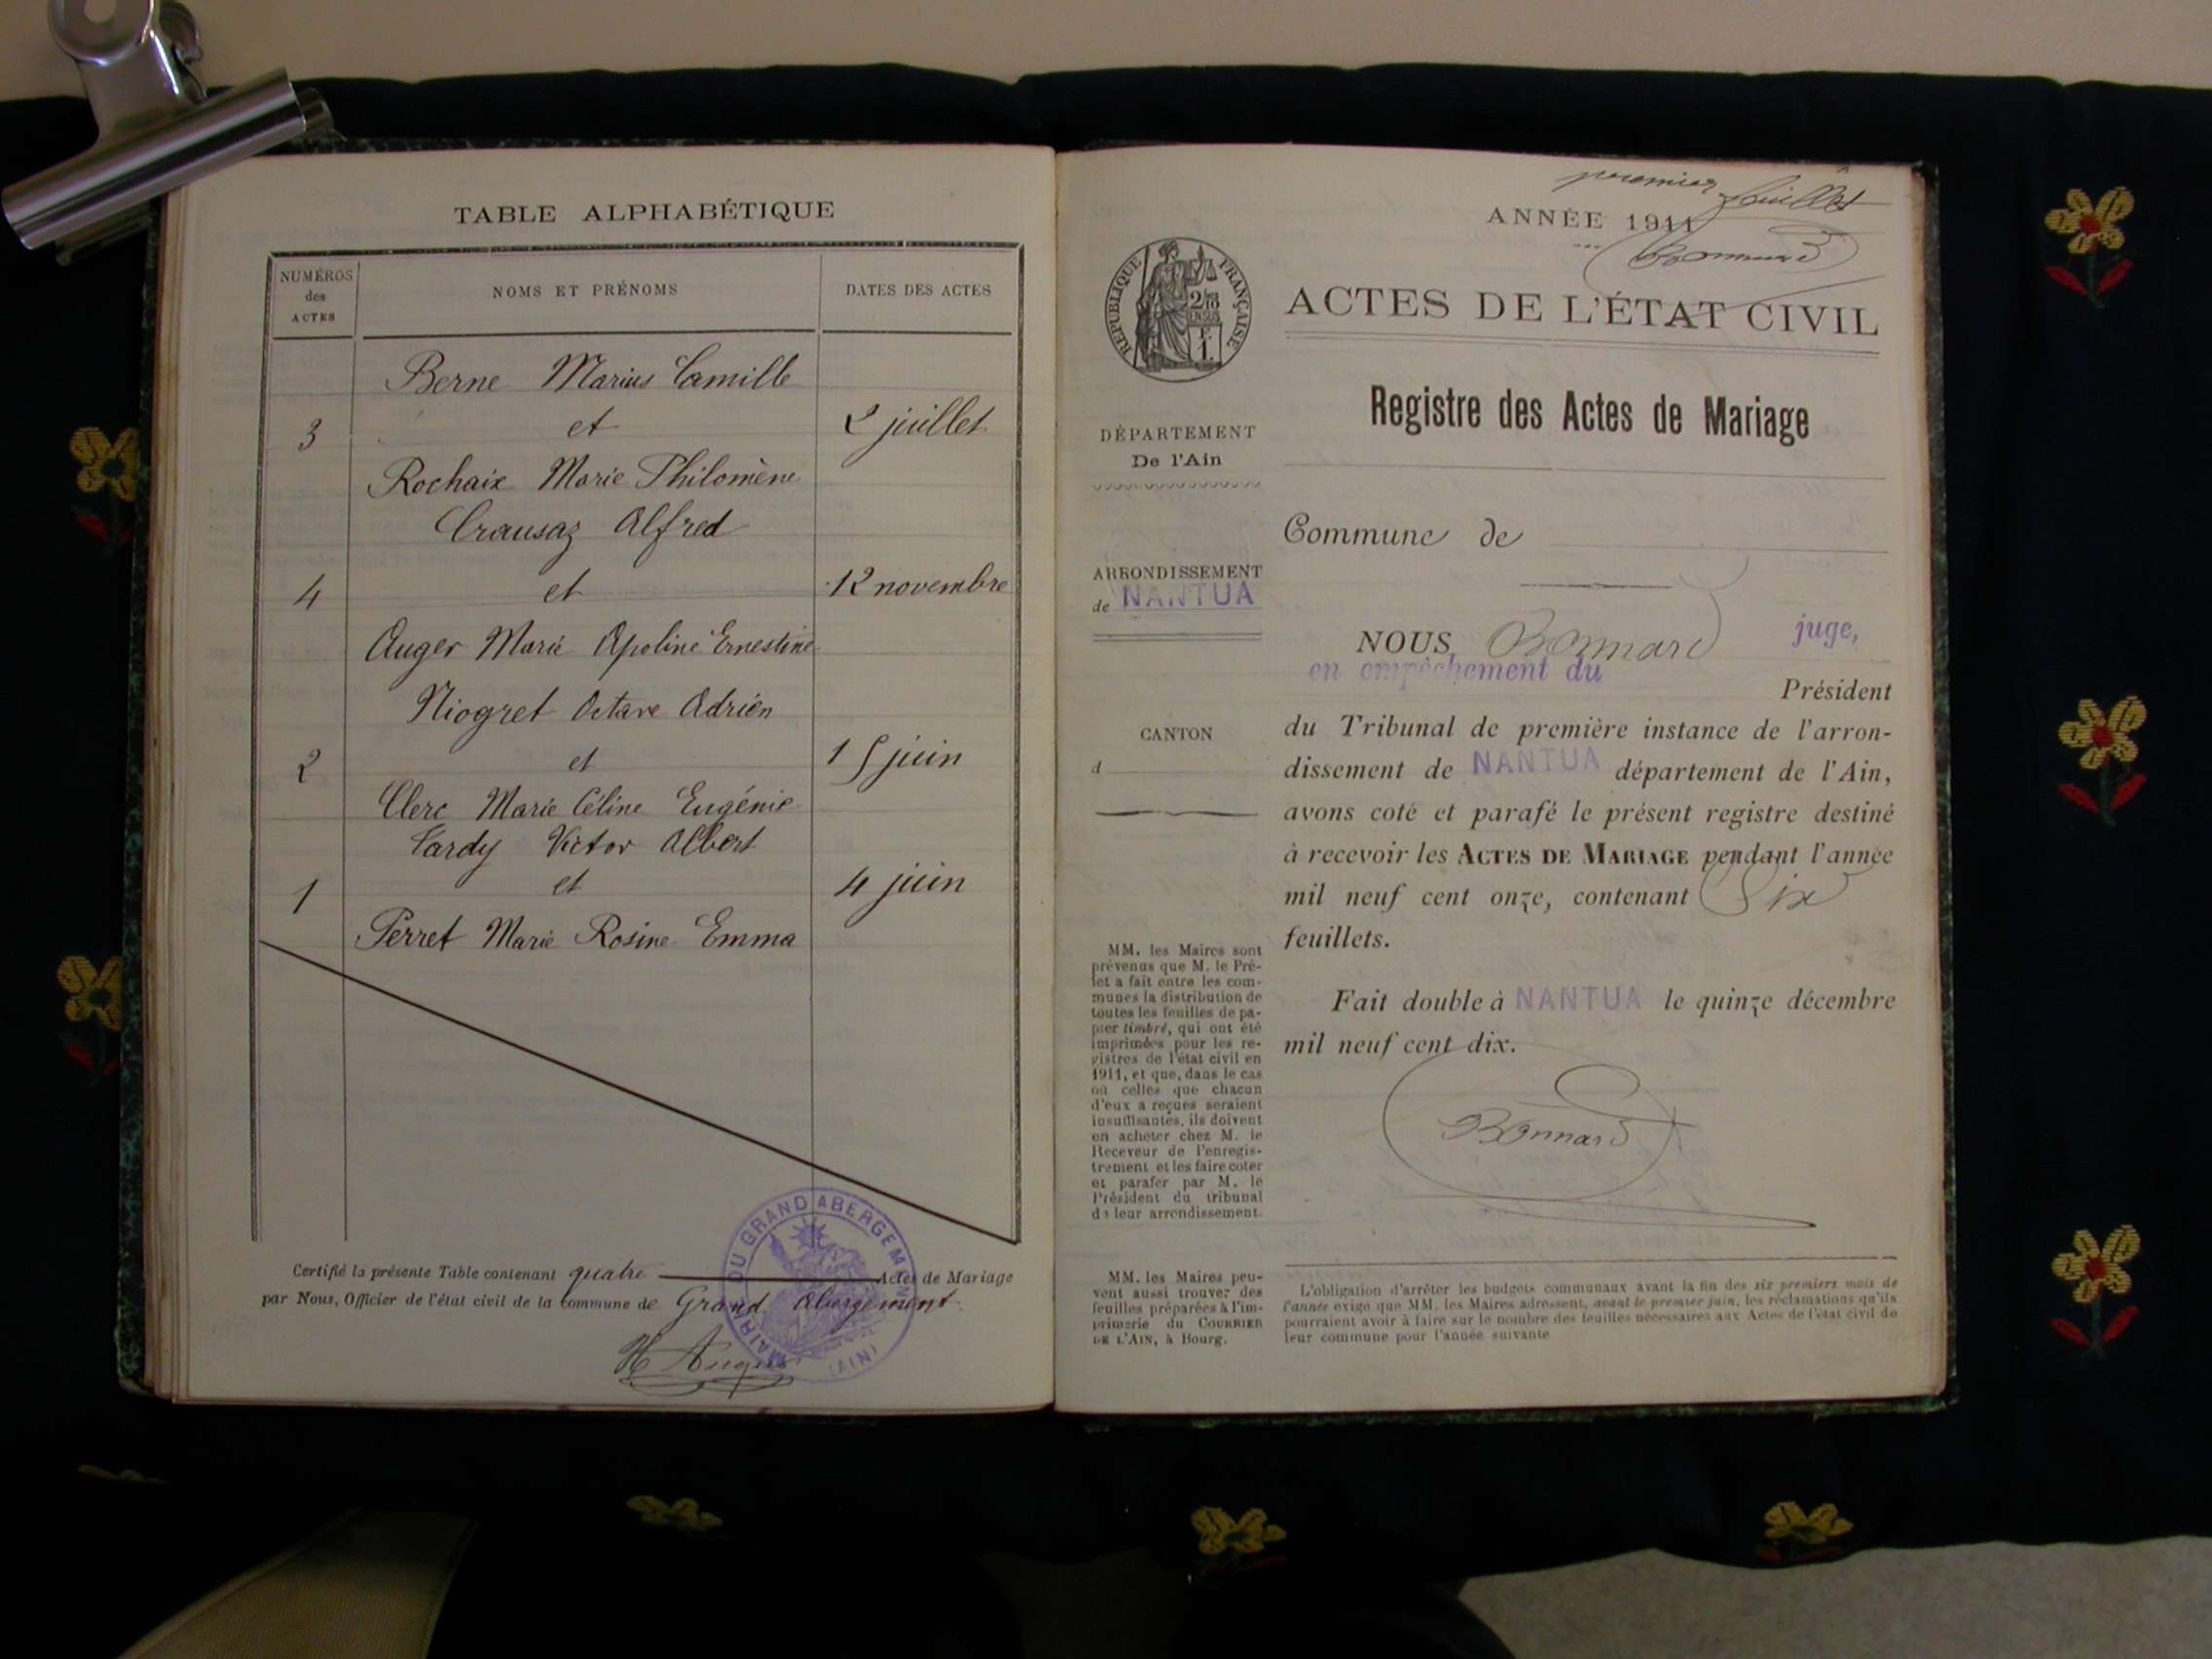 TABLE ALPHABÉTIQUE
NUMÉROS
des
ACTES
NOMS ET PRÉNOMS
DATES DES ACTES
Berne Marius Camille
3 et 2 juillet
Rochaix Marie Philomène
Crausaz Alfred
4 et 12 novembre
Auger Marie Apoline Ernestine
Niogret Octave Adrien
2 et 15 juin
Clerc Marie Céline Eugénie
Tardy Victor Albert
1 et 4 juin
Perret Marie Rosine Emma
Certifié la présente Table contenant quatre Actes de Mariage
par Nous, Officier de l'état civil de la commune de Grand Abergement
MAIRIE DU GRAND ABERGEMENT
(AIN)
premier feuillet
ANNÉE 1911
Bonnard
RÉPUBLIQUE FRANÇAISE
ACTES DE L'ÉTAT CIVIL
Registre des Actes de Mariage
DÉPARTEMENT
De l'Ain
ARRONDISSEMENT
de NANTUA
CANTON
d
Commune de
NOUS Bonnard juge,
en empêchement du
Président
du Tribunal de première instance de l'arron-
dissement de NANTUA département de l'Ain,
avons coté et parafé le présent registre destiné
à recevoir les ACTES DE MARIAGE pendant l'année
mil neuf cent onze, contenant Six
feuillets.
Fait double à NANTUA le quinze décembre
mil neuf cent dix.
Bonnard
MM. les Maires sont
prévenus que M. le Pré-
fet a fait entre les com-
munes la distribution de
toutes les feuilles de pa-
pier timbré, qui ont été
imprimées pour les re-
gistres de l'état civil en
1911, et que, dans le cas
où celles que chacun
d'eux a reçues seraient
insuffisantes, ils doivent
en acheter chez M. le
Receveur de l'enregis-
trement et les faire coter
et parafer par M. le
Président du tribunal
de leur arrondissement.
MM. les Maires peu-
vent aussi trouver des
feuilles préparées à l'im-
primerie du COURRIER
DE L'AIN, à Bourg.
L'obligation d'arrêter les budgets communaux avant la fin des six premiers mois de
l'année exige que MM. les Maires adressent, avant le premier juin, les réclamations qu'ils
pourraient avoir à faire sur le nombre des feuilles nécessaires aux Actes de l'état civil de
leur commune pour l'année suivante